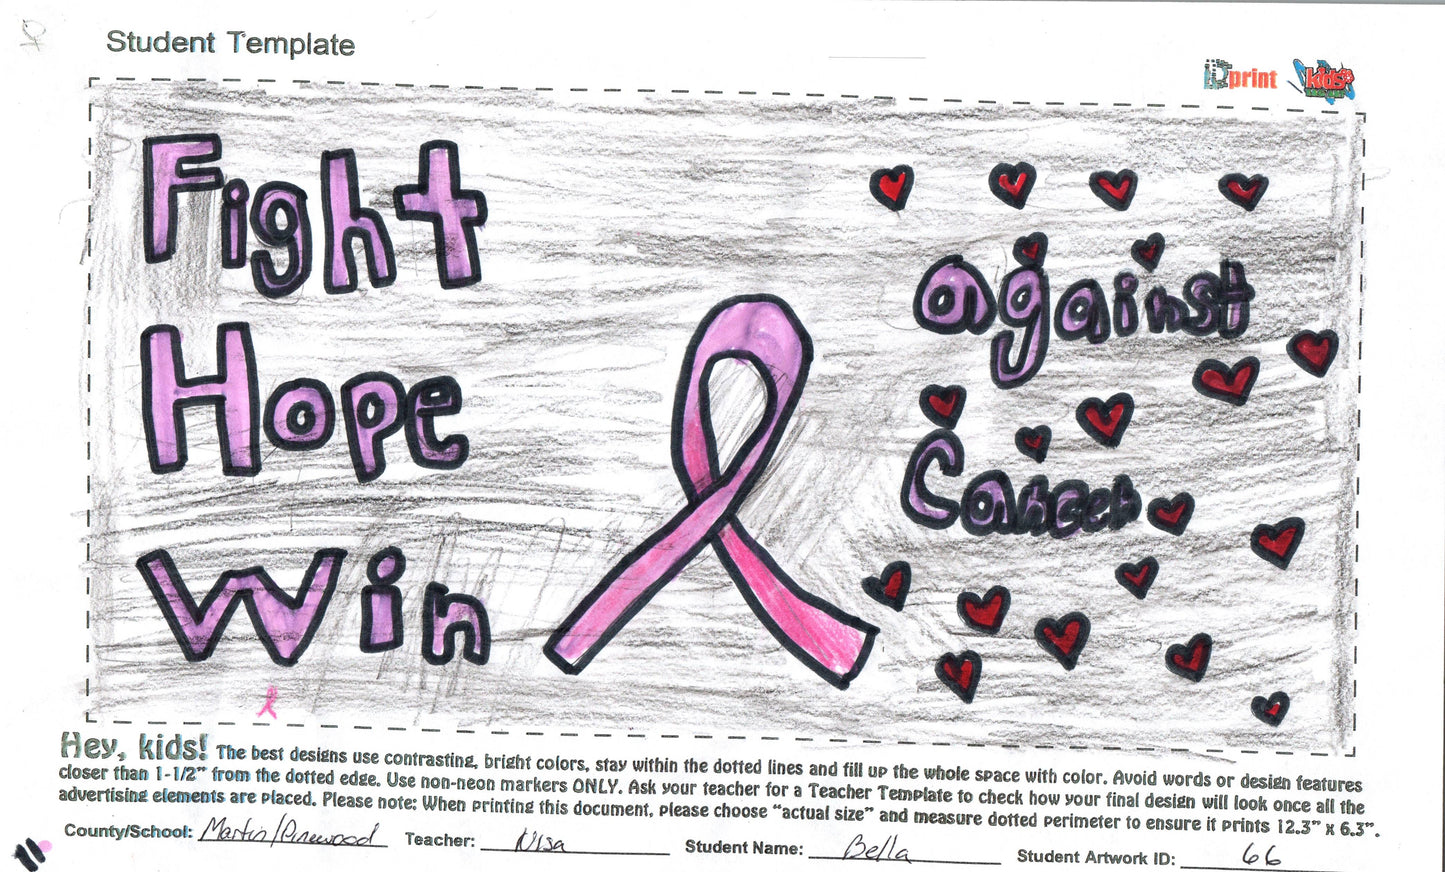 Student Template
IDprint
kids
Fight
Hope
Win
against
Cancer
Hey, kids! The best designs use contrasting, bright colors, stay within the dotted lines and fill up the whole space with color. Avoid words or design features
closer than 1-1/2" from the dotted edge. Use non-neon markers ONLY. Ask your teacher for a Teacher Template to check how your final design will look once all the
advertising elements are placed. Please note: When printing this document, please choose "actual size" and measure dotted perimeter to ensure it prints 12.3" x 6.3".
County/School: Martin/Pinewood Teacher: Nisa Student Name: Bella Student Artwork ID: 66